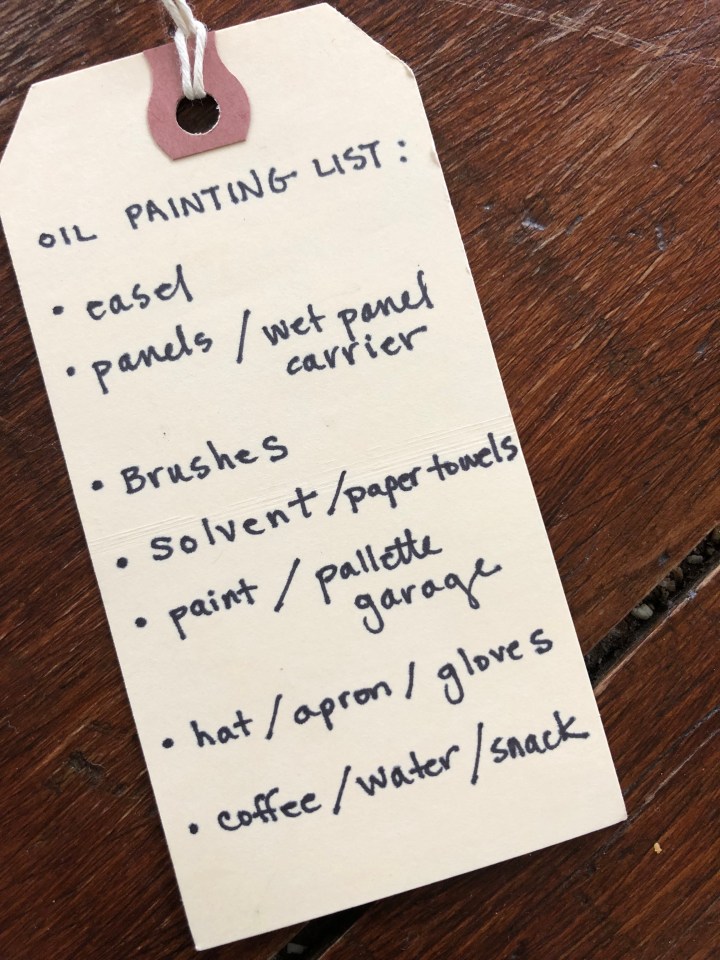 OIL PAINTING LIST:
• easel
• panels / wet panel
carrier
• Brushes
• Solvent / paper towels
• paint / pallette
garage
• hat / apron / gloves
• coffee / water / snack